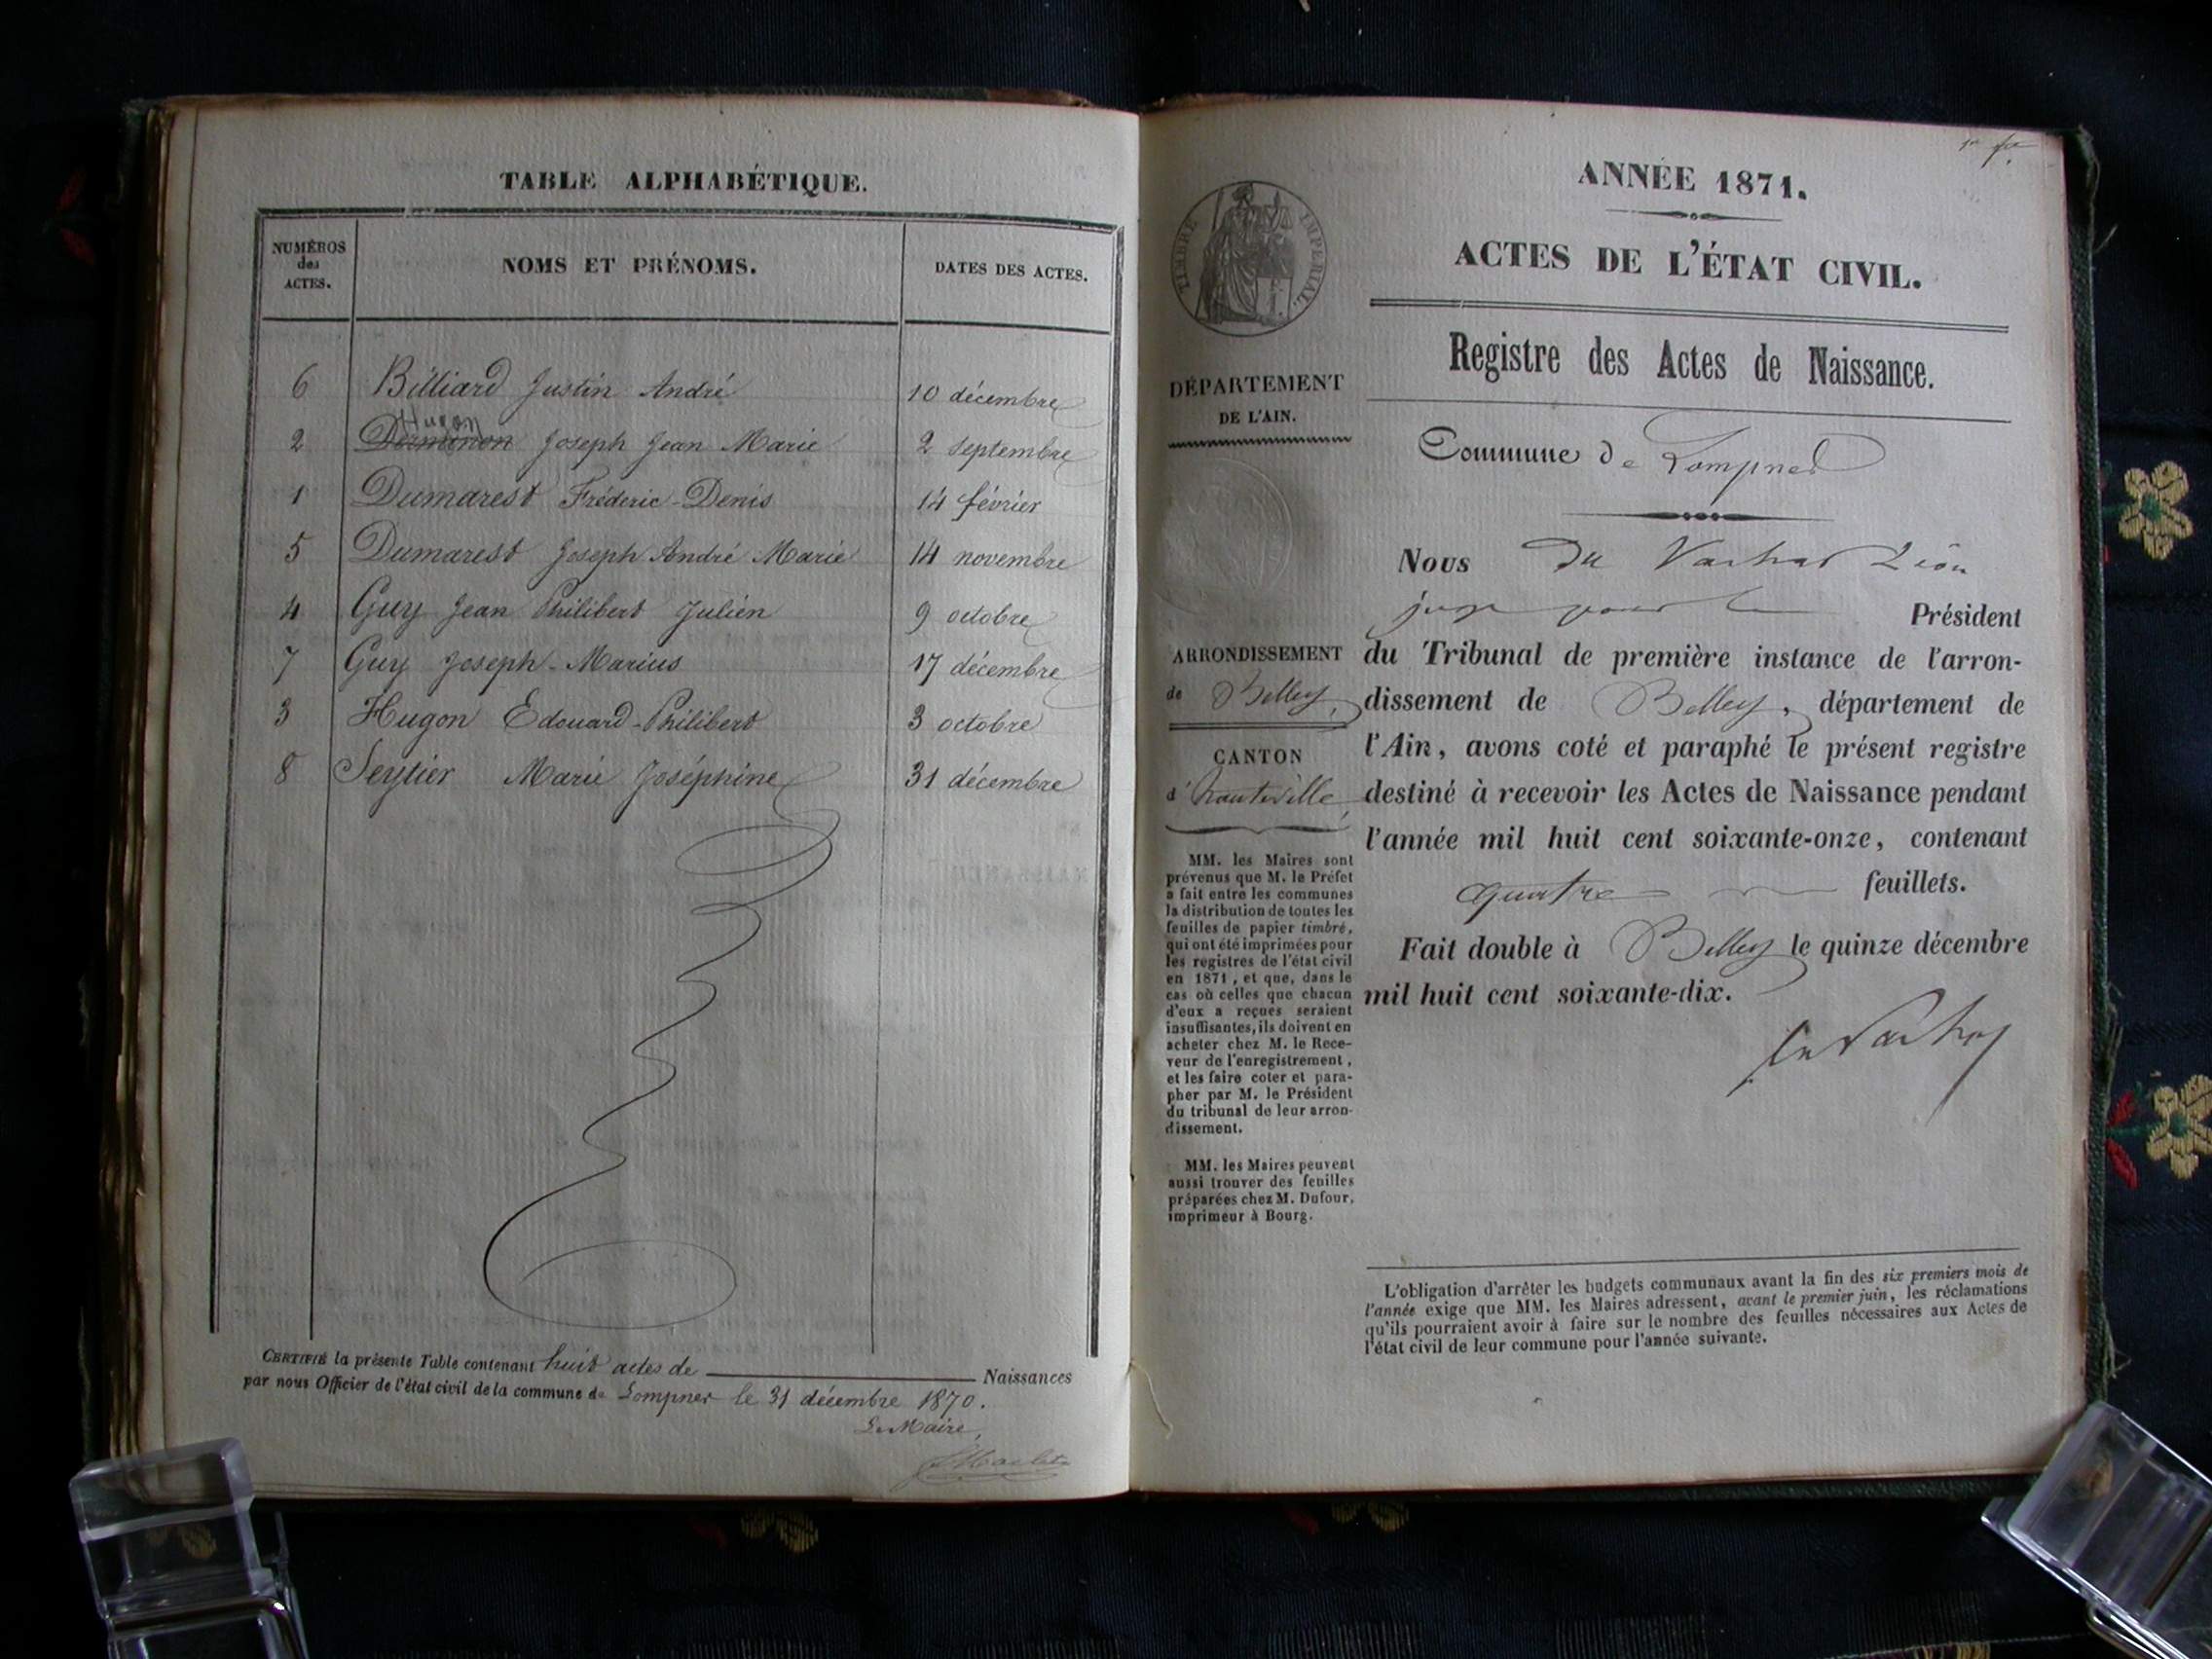 TABLE ALPHABÉTIQUE.
NUMÉROS
des
ACTES.
NOMS ET PRÉNOMS.
DATES DES ACTES.
6 Billiard Justin André 10 décembre
Hugon
2 Dermonon Joseph Jean Marie 2 septembre
1 Dumarest Fréderic-Denis 14 février
5 Dumarest Joseph André Marie 14 novembre
4 Guy Jean Philibert Julien 9 octobre
7 Guy Joseph-Marius 17 décembre
3 Hugon Edouard-Philibert 3 octobre
8 Seytier Marie Joséphine 31 décembre
CERTIFIÉ la présente Table contenant huit actes de Naissances
par nous Officier de l'état civil de la commune de Lompner le 31 décembre 1870.
Le Maire,
ANNÉE 1871.
ACTES DE L'ÉTAT CIVIL.
Registre des Actes de Naissance.
TIMBRE IMPERIAL.
DÉPARTEMENT
DE L'AIN.
ARRONDISSEMENT
de Belley,
CANTON
d'hauteville,
MM. les Maires sont
prévenus que M. le Préfet
a fait entre les communes
la distribution de toutes les
feuilles de papier timbré,
qui ont été imprimées pour
les registres de l'état civil
en 1871, et que, dans le
cas où celles que chacun
d'eux a reçues seraient
insuffisantes, ils doivent en
acheter chez M. le Rece-
veur de l'enregistrement,
et les faire coter et para-
pher par M. le Président
du tribunal de leur arron-
dissement.
MM. les Maires peuvent
aussi trouver des feuilles
préparées chez M. Dufour,
imprimeur à Bourg.
Commune de Lompner
Nous du Vachat Léon
juge pour le Président
du Tribunal de première instance de l'arron-
dissement de Belley, département de
l'Ain, avons coté et paraphé le présent registre
destiné à recevoir les Actes de Naissance pendant
l'année mil huit cent soixante-onze, contenant
quatre feuillets.
Fait double à Belley le quinze décembre
mil huit cent soixante-dix.
L'obligation d'arrêter les budgets communaux avant la fin des six premiers mois de
l'année exige que MM. les Maires adressent, avant le premier juin, les réclamations
qu'ils pourraient avoir à faire sur le nombre des feuilles nécessaires aux Actes de
l'état civil de leur commune pour l'année suivante.